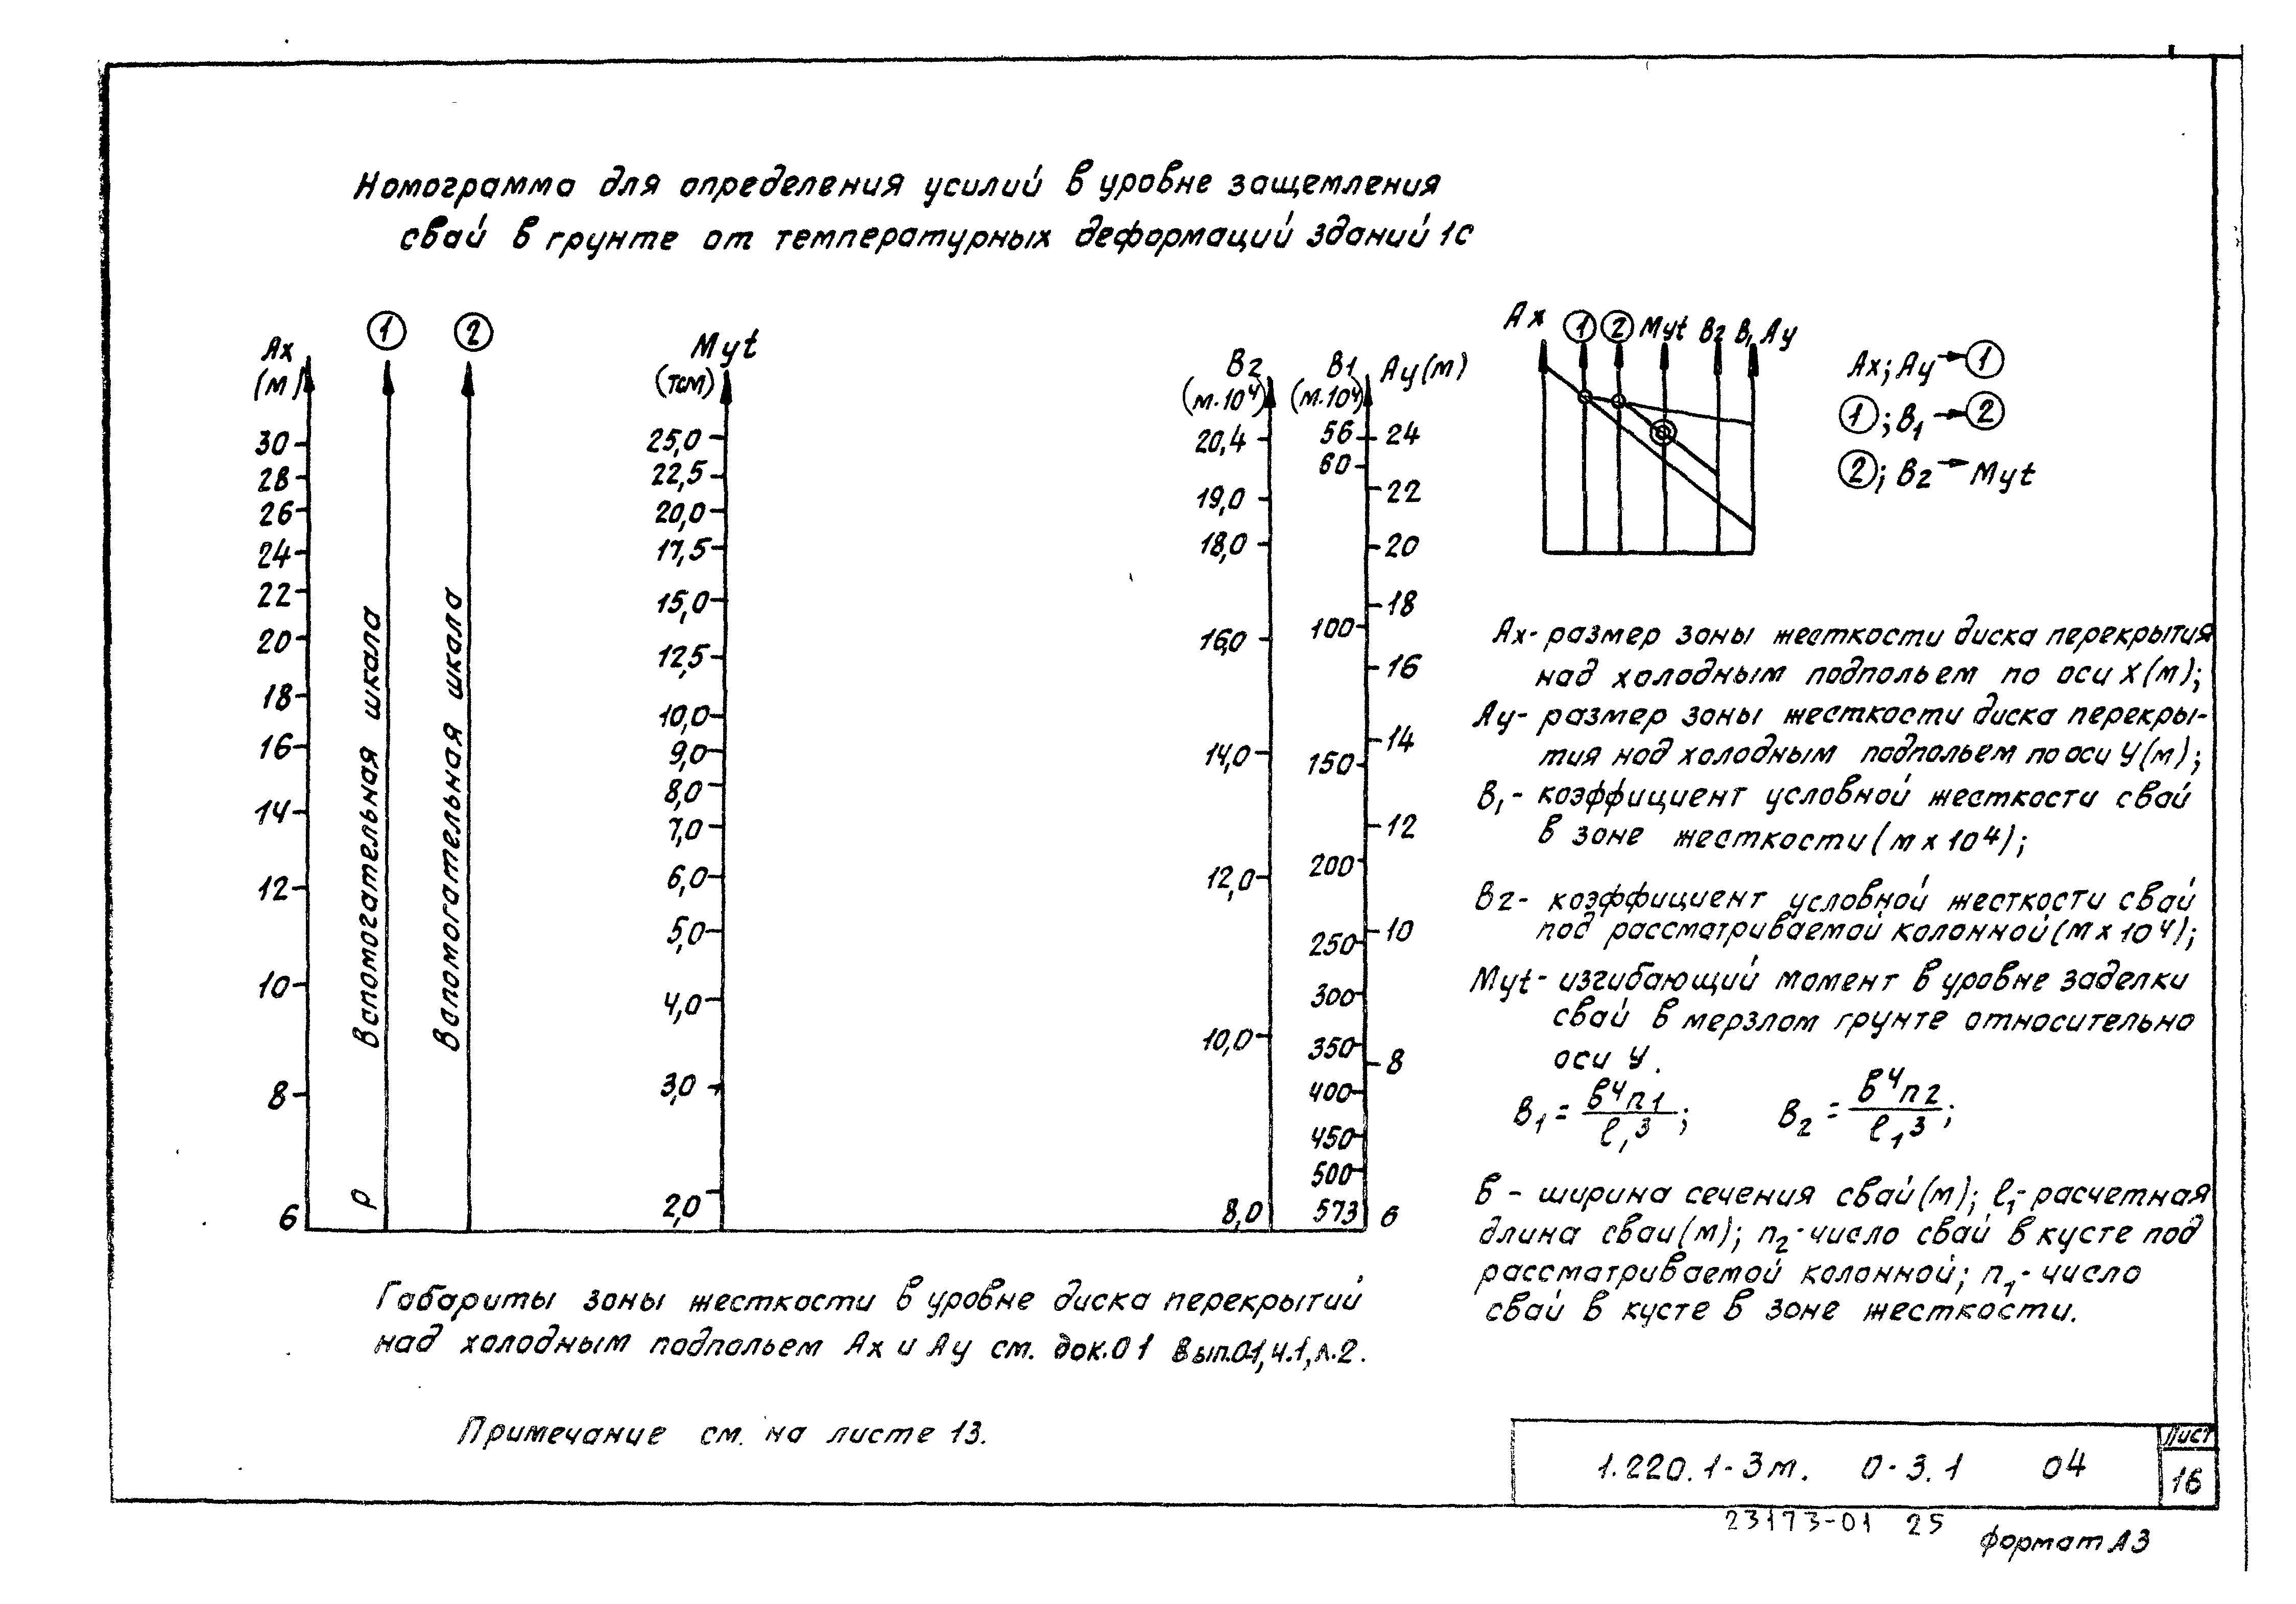 Номограмма для определения усилий в уровне защемления
свай в грунте от температурных деформаций зданий 1с
Ах
(м)
30
28
26
24
22
20
18
16
14
12
10
8
6
1
Вспомогательная шкала
Р
2
Вапомогательная шкала
Myt
(тсм)
25,0
22,5
20,0
17,5
15,0
12,5
10,0
9,0
8,0
7,0
6,0
5,0
4,0
3,0
2,0
В2
(м·10⁴)
20,4
19,0
18,0
16,0
14,0
12,0
10,0
8,0
В1
(м·10⁴)
56
60
100
150
200
250
300
350
400
450
500
573
Ау(м)
24
22
20
18
16
14
12
10
8
6
Ах 1 2 Myt В2 В₁ Ау
Ах; Ау → 1
1; В₁ → 2
2; В2 → Myt
Ах- размер зоны жесткости диска перекрытия
над холодным подпольем по оси Х(м);
Ау- размер зоны жесткости диска перекры-
тия над холодным подпольем по оси У(м);
В₁- коэффициент условной жесткости свай
в зоне жесткости(м х 10⁴);
В2- коэффициент условной жесткости свай
под рассматриваемой колонной(м х 10⁴);
Myt- изгибающий момент в уровне заделки
свай в мерзлом грунте относительно
оси У.
В₁ = в⁴n1/ℓ₁³; В₂ = в⁴n2/ℓ₁³;
в - ширина сечения свай(м); ℓ₁- расчетная
длина сваи(м); n₂- число свай в кусте под
рассматриваемой колонной; n₁- число
свай в кусте в зоне жесткости.
Габариты зоны жесткости в уровне диска перекрытий
над холодным подпольем Ах и Ау см. док.01 Вып.0-1, ч.1, л.2.
Примечание см. на листе 13.
1.220.1-3м. 0-3.1 04
Лист
16
23173-01 25
формат А3